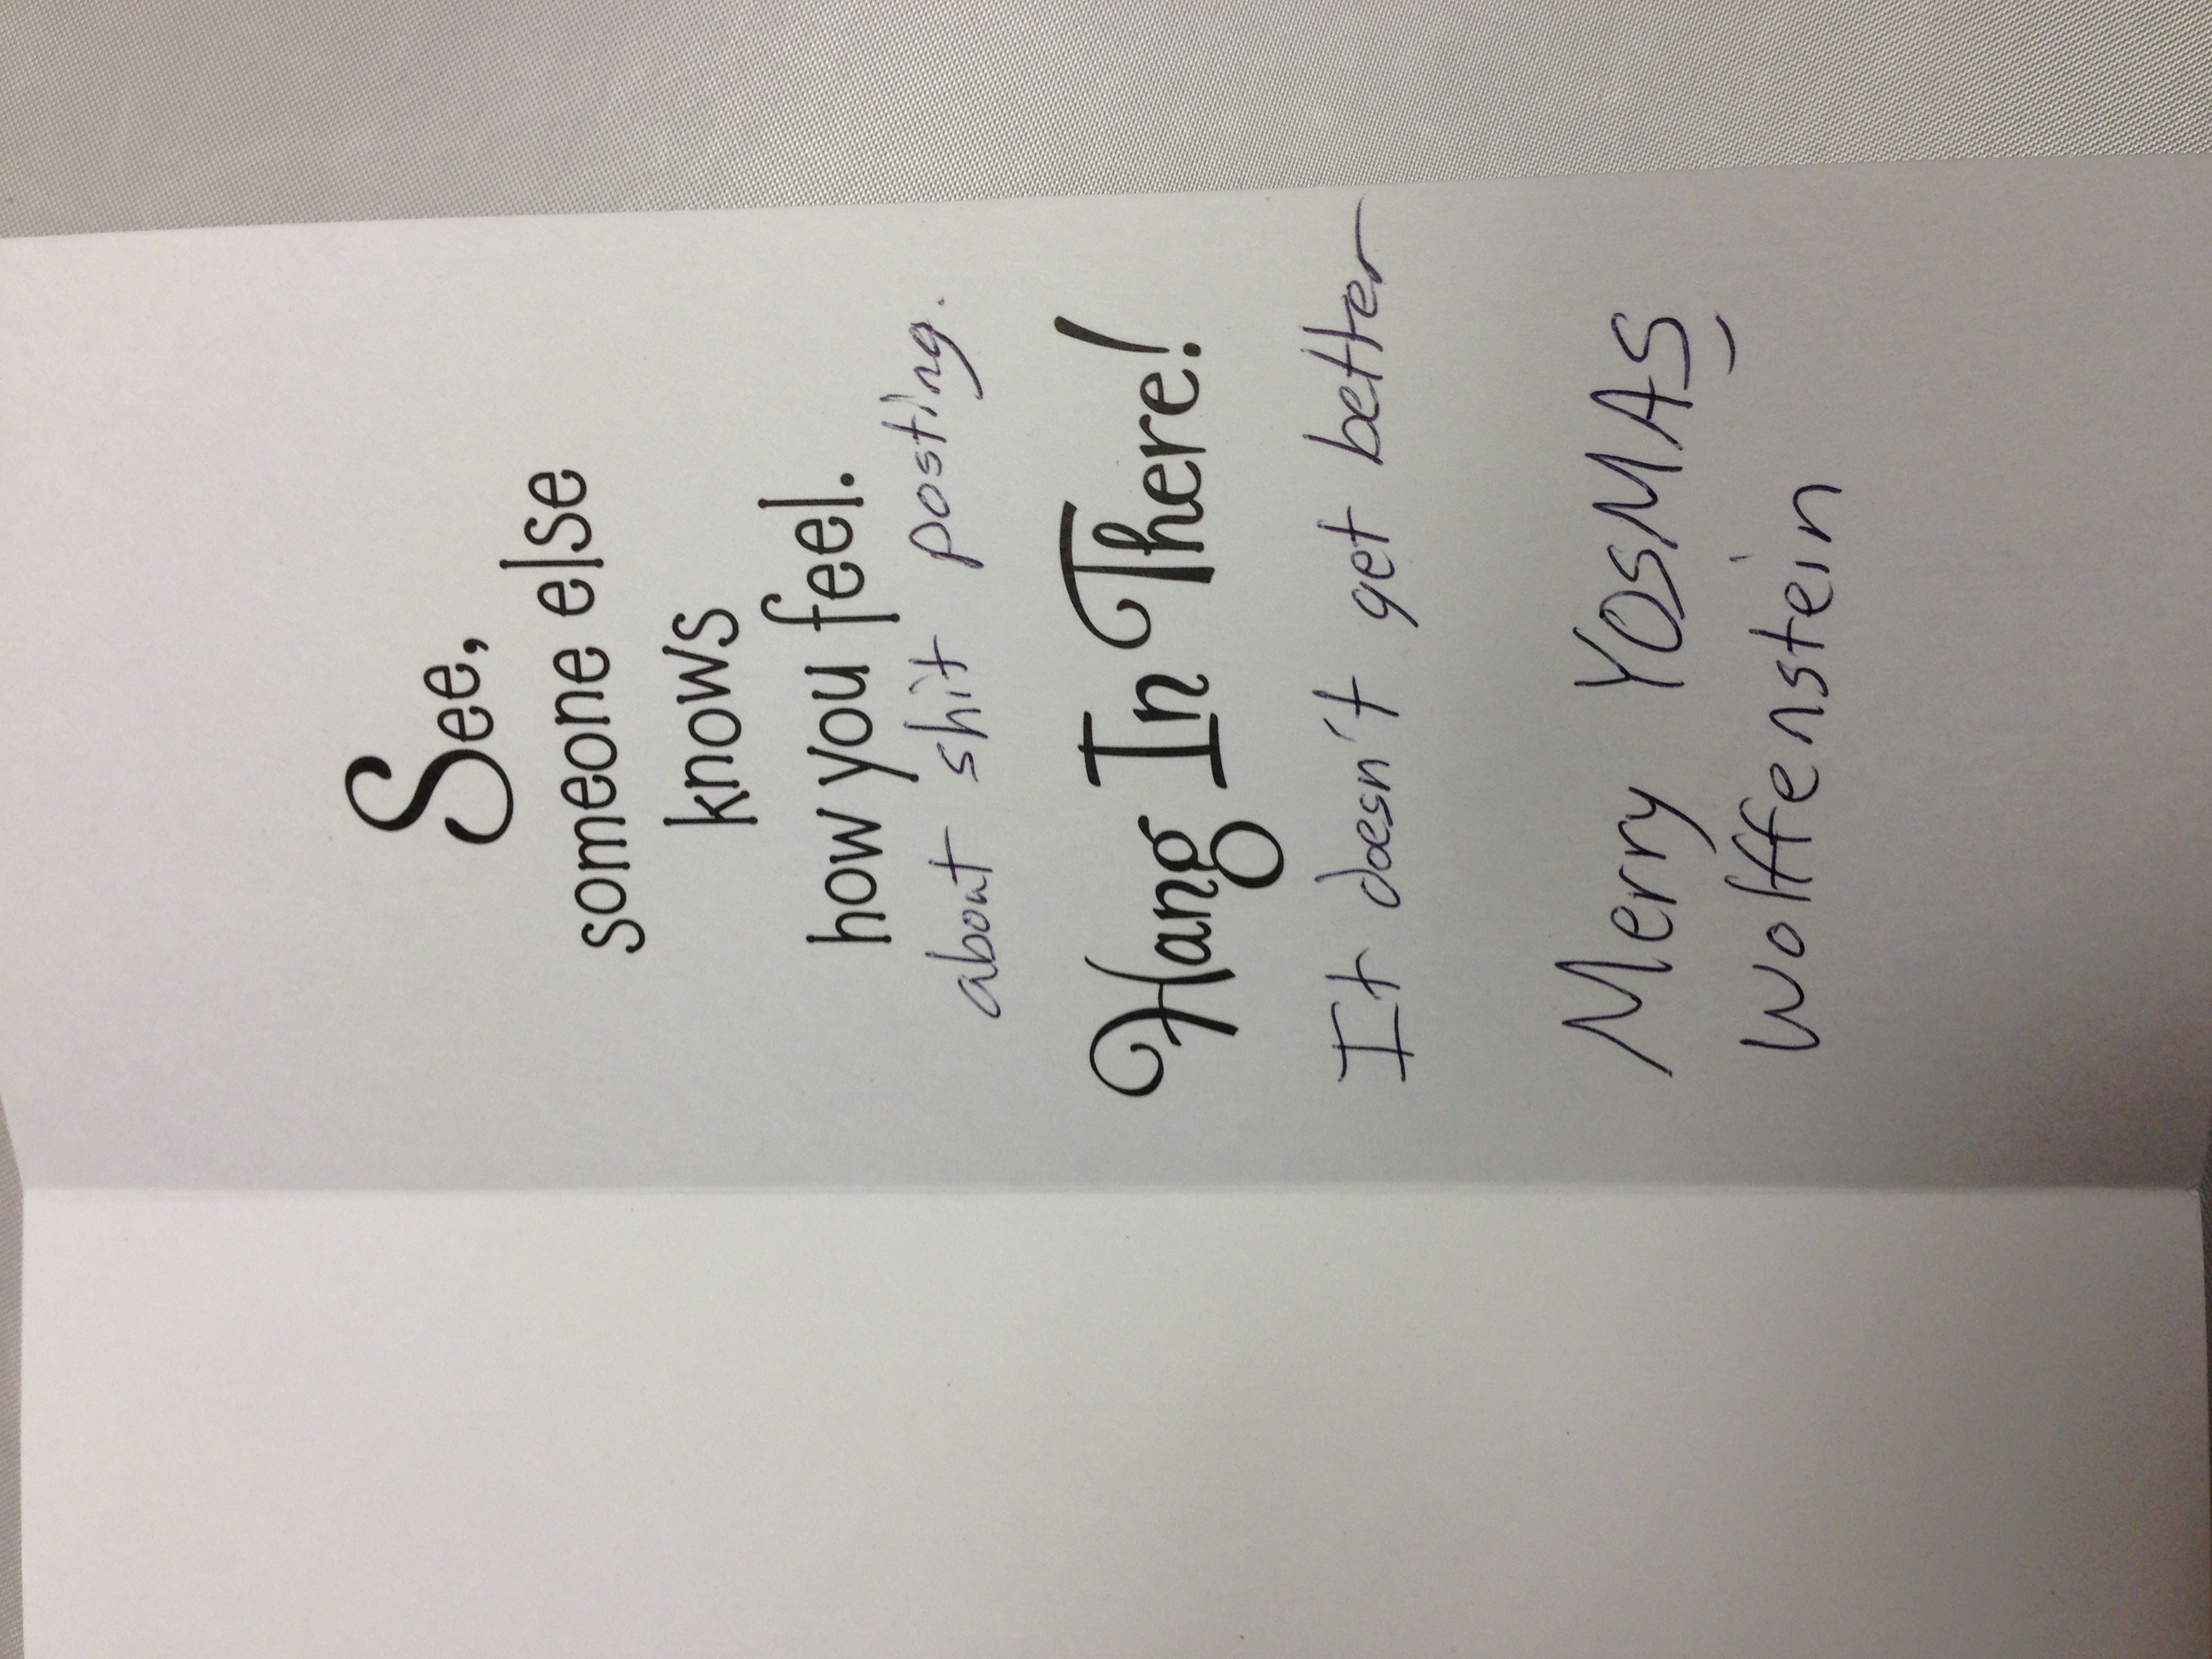 See,
someone else
knows
how you feel.
about shit posting.
Hang In There!
It doesn't get better
Merry YOSMAS
Wolffenstein